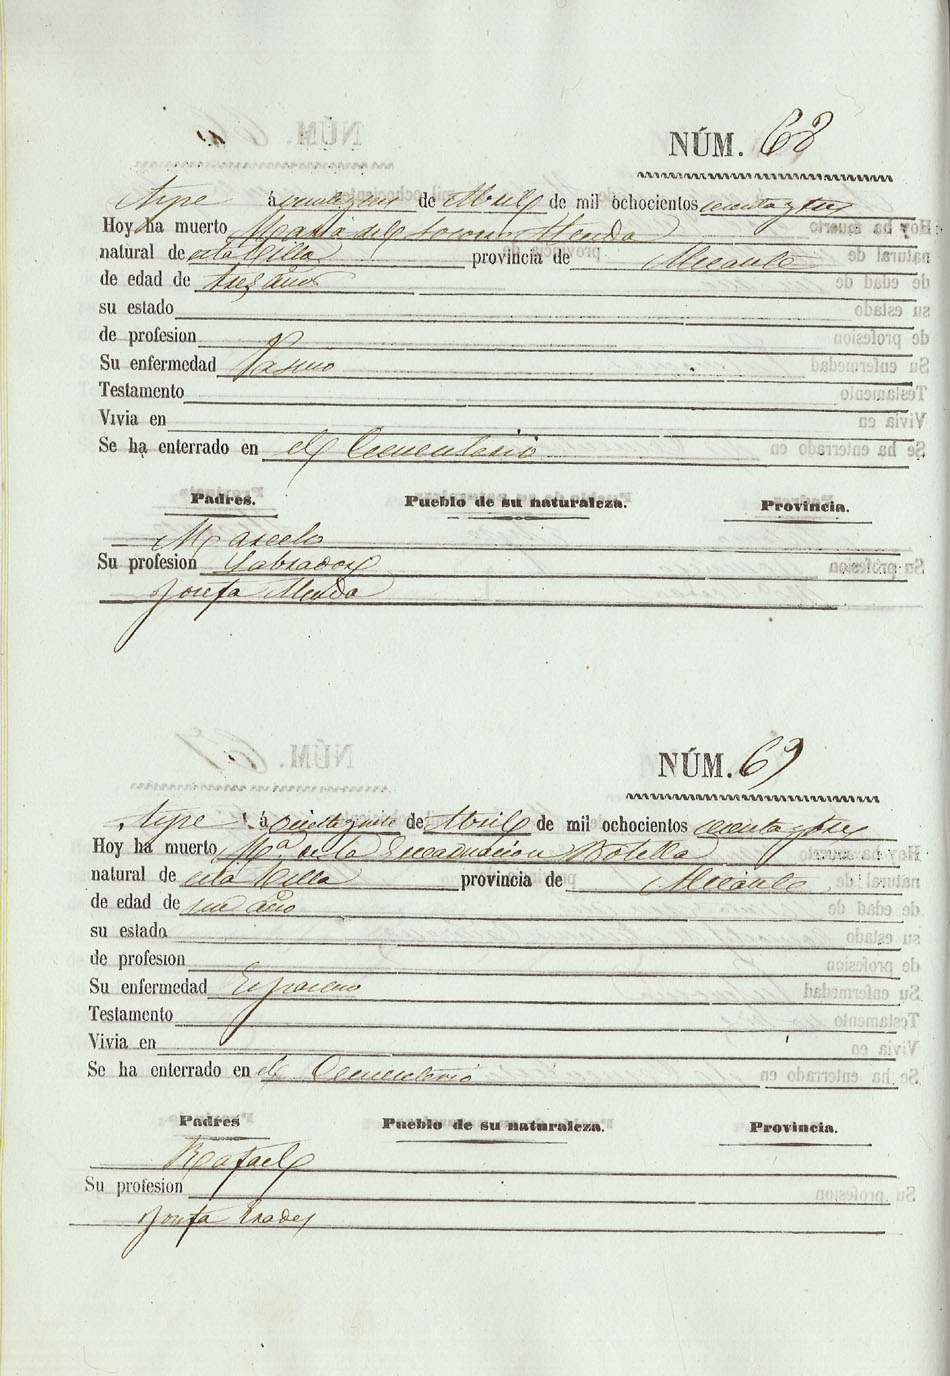 NÚM. 68
Aspe á veinte y de Abril de mil ochocientos sesenta y tres
Hoy ha muerto Maria del Socorro Almodo
natural de esta Villa provincia de Alicante
de edad de tres años
su estado
de profesion
Su enfermedad Pasmo
Testamento
Vivia en
Se ha enterrado en el Cementerio
Padres. Pueblo de su naturaleza. Provincia.
Marcelo
Su profesion Labrador
Josefa
NÚM. 69
Aspe á veinte y siete de Abril de mil ochocientos sesenta y tres
Hoy ha muerto Mª de la Encarnacion Botella
natural de esta Villa provincia de Alicante
de edad de un año
su estado
de profesion
Su enfermedad
Testamento
Vivia en
Se ha enterrado en el Cementerio
Padres Pueblo de su naturaleza. Provincia.
Rafael
Su profesion
Josefa Prades